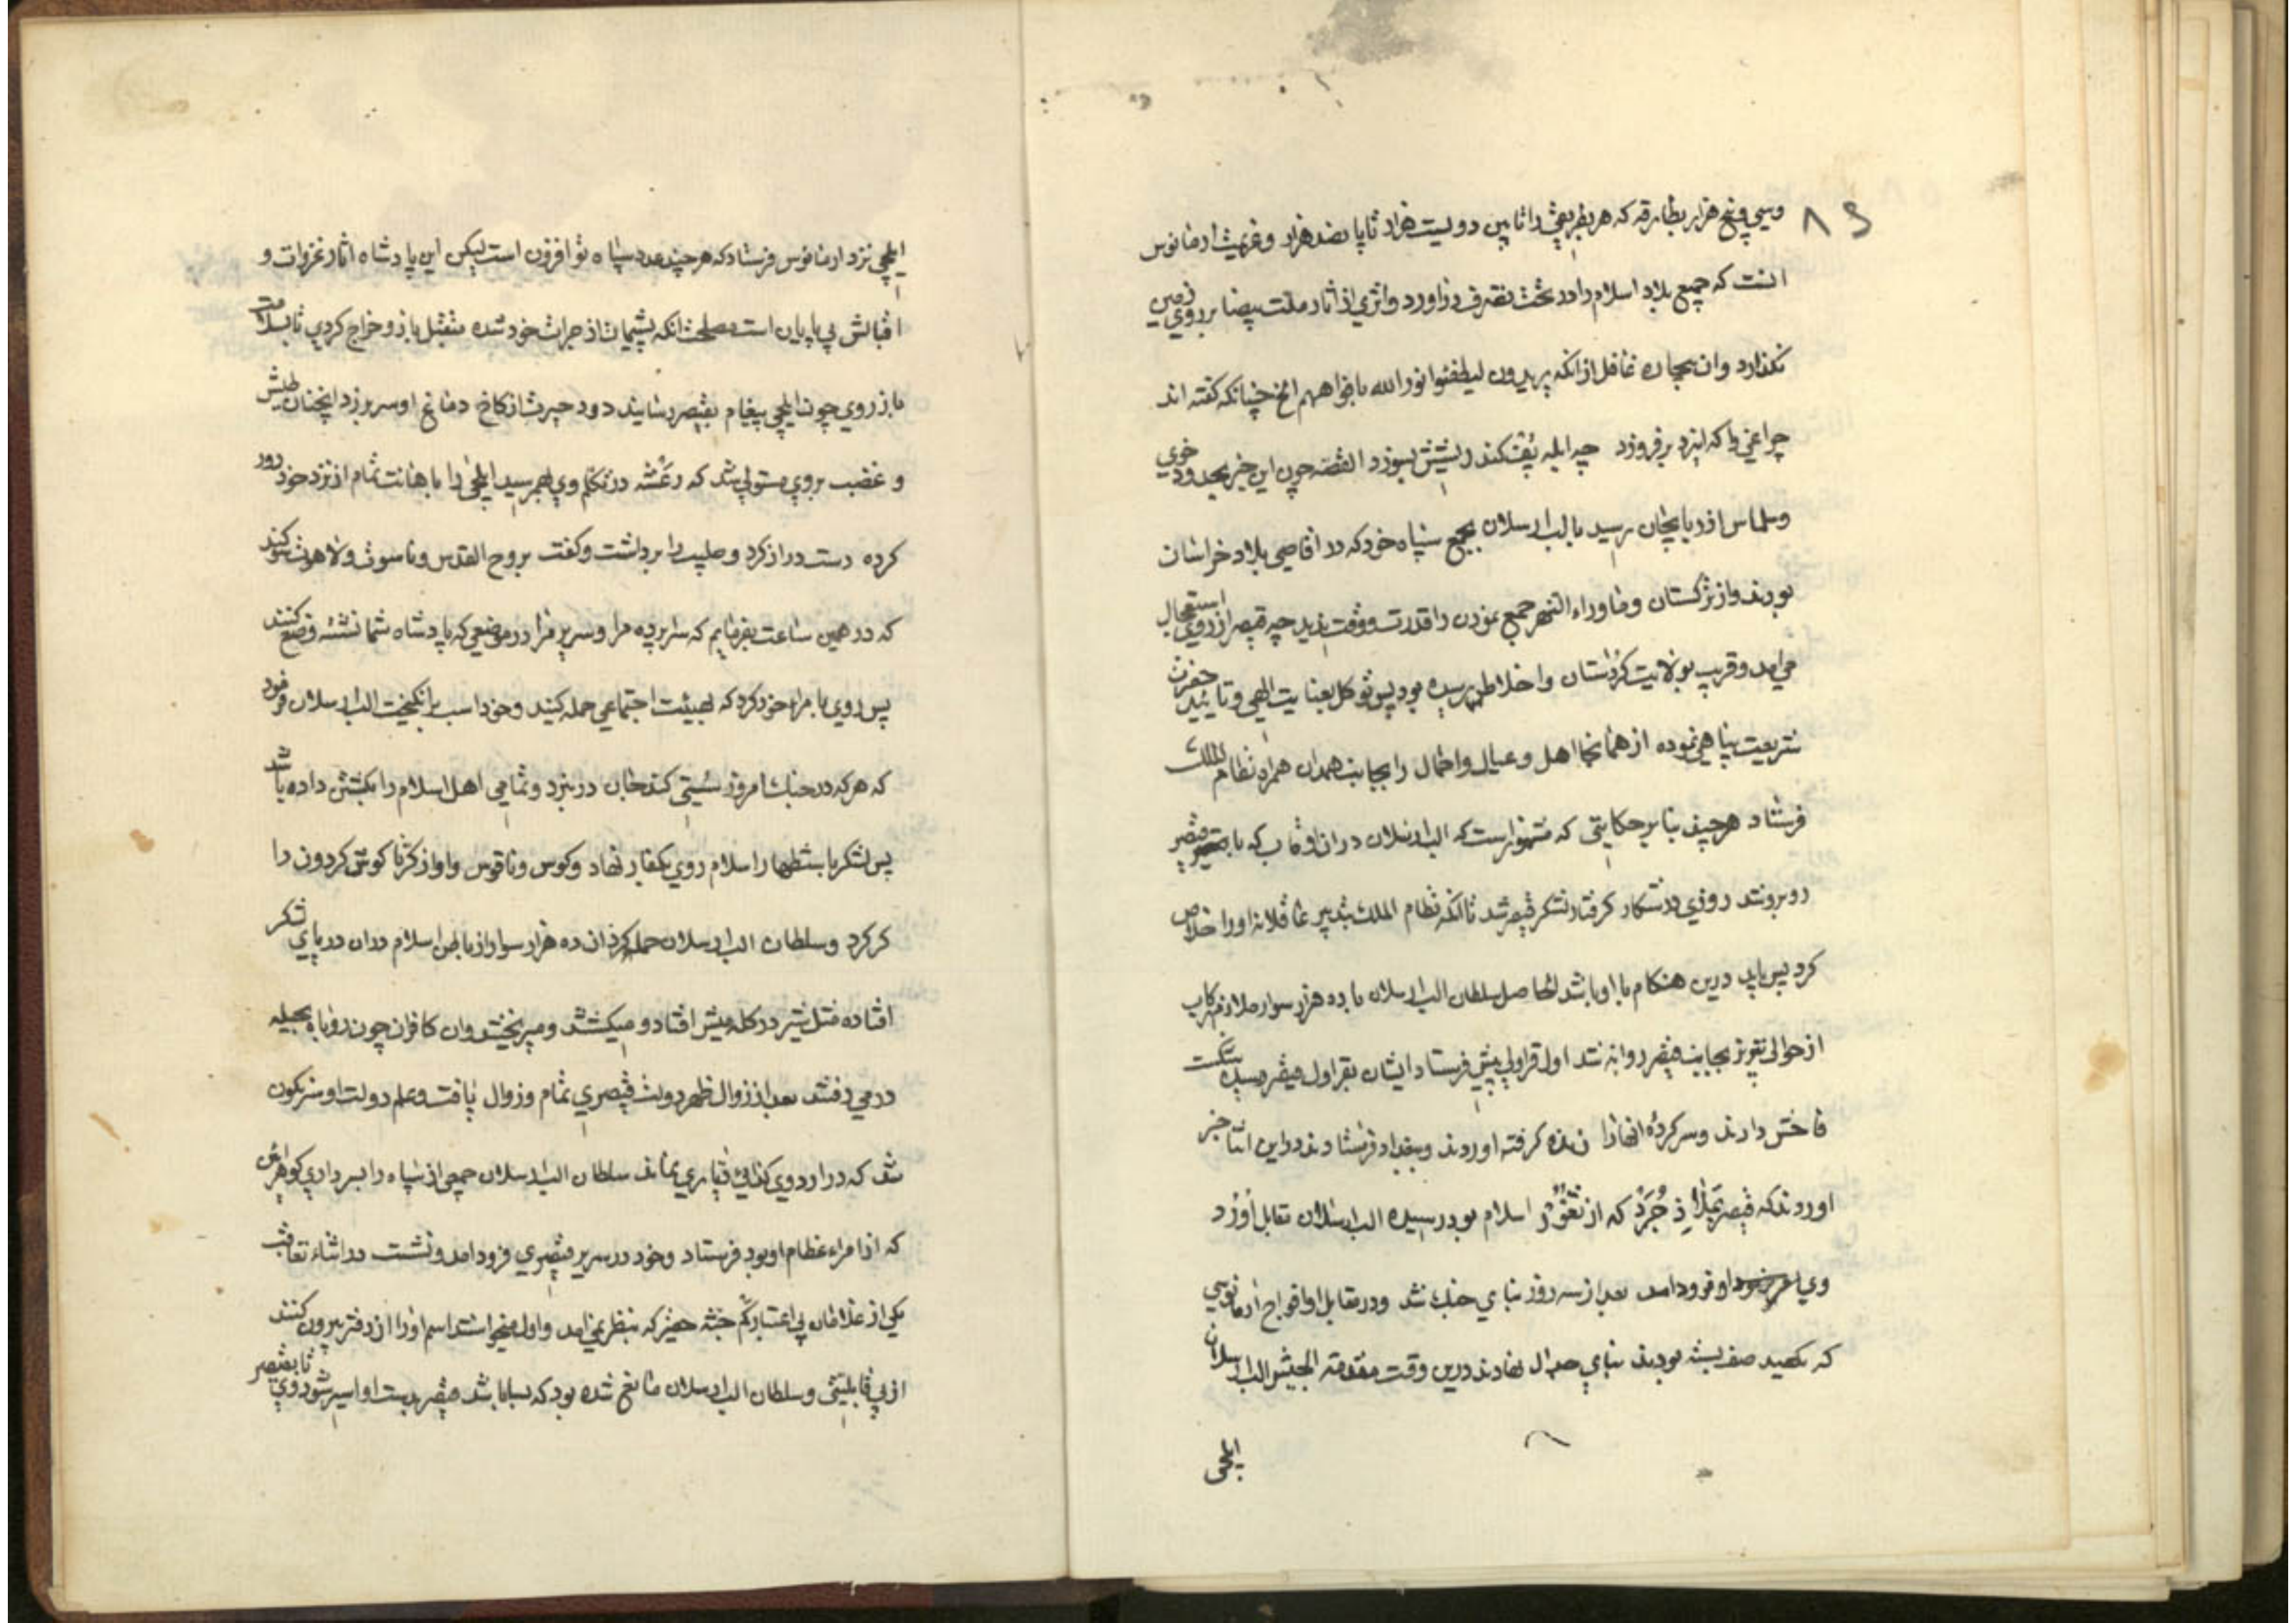 ۸۶
وسی و پنج هزار بطارقه که هر بطریقی را تابین دویست هزار تا پانصد هزار و عزیمت ارمانوس
انست که جمیع بلاد اسلام را در تحت تصرف دراورد و اثری از اثار ملت بیضا بر روی زمین
نکذارد وان بیچاره غافل از انکه یریدون لیطفئوا نور الله بافواههم الخ چنانکه کفته اند
چراغی را که ایزد برفروزد چه ابله پف کند ریشش بسوزد القصه چون این خبر بحدود خوی
وسلماس اذربایجان رسید بالب ارسلان بجمع سپاه خود که در اقاصی بلاد خراسان
بودند واز ترکستان وماوراء النهر جمع نمودن را قدرت ووقت ندید چه قیصر از روی استعجال
می امد وقریب بولایت کردستان واخلاط رسیده بود پس توکل بعنایت الهی وتایید حضرت
شریعت پناهی نموده از همانجا اهل وعیال واحمال را بجانب همدان همراه نظام الملک
فرستاد هرچند بنا بر حکایتی که مشهور است که الب ارسلان در ان وقت که با قیصر
روبرو شد روزی در شکار کرفتار لشکر قیصر شد تا انکه نظام الملک بتدبیر عاقلانه او را خلاص
کرد پس باید درین هنکام با او باشد الحاصل سلطان الب ارسلان با ده هزار سوار ملازم رکاب
از حوالی تبریز بجانب قیصر روانه شد اول قراولی پیش فرستاد ایشان بقراول قیصر رسیده شکست
فاحش دادند وسرکرده انها را زنده کرفته اوردند وببغداد فرستادند در این اثنا خبر
اوردند که قیصر بملاذجرد که از ثغور اسلام بود رسیده الب ارسلان تقابل اردو
وی اوفرود امد بعد از سه روز بنای جنک شد ودر مقابل افواج ارمانوسی
که صف بسته بودند بنای جدال نهادند درین وقت مقدمة الجیش الب ارسلان
ایلچی
ایلچی نزد ارمانوس فرستاد که هر چند عدد سپاه تو افزون است لیکن این پادشاه اثار غزوات و
اقبالش بی پایان است مصلحت انکه پشیمان از جرات خود شده متقبل باژ وخراج کردی تا بسلامت
باز روی چون ایلچی پیغام بقیصر رسانید دود حیرت از کاخ دماغ او سر برزد انچنان طیش
و غضب بر وی مستولی شد که رعشه در تکلم وی بهمرسید ایلچی را باهانت تمام از نزد خود دور
کرده دست دراز کرد وصلیب را برداشت وکفت بروح القدس وناسوت ولاهوت سوکند
که در همین ساعت بفرمایم که سراپرده مرا وسریر مرا در موضعی که پادشاه شما نشسته وضع کنند
پس روی بامراء خود کرد که بهیئت اجتماعی حمله کنید وخود اسب برانکیخت الب ارسلان فرمود
که هرکه در جنک امروز سستی کند جان در نبرد وتمامی اهل اسلام را بکشتن داده باشد
پس لشکر باستظهار اسلام روی بکفار نهاد وکوس وناقوس واواز کرنا کوش کردون را
کر کرد وسلطان الب ارسلان حمله کرد ان ده هزار سوار از باطن اسلام دران دریای لشکر
افتاده مثل شیر در کله میش افتاد و میکشتند ومیریختند وان کافران چون روباه بحیله
در می رفتند بعد از زوال ظهر دولت قیصری تمام وزوال یافت وعلم دولت او سرنکون
شد که در اردوی دیاری نماند سلطان الب ارسلان جمعی از سپاه را بسرداری کوهراین
که از امراء عظام او بود فرستاد وخود در سریر قیصری فرود امد ونشست در اثناء تعاقب
یکی از غلامان بی اعتبار کم جثه حقیر که بنظر نمی امد واول میخواستند اسم او را از دفتر بیرون کنند
از بی قابلیتی وسلطان الب ارسلان مانع شده بود که بسا باشد قیصر بدست او اسیر شود روی تا بقیصر